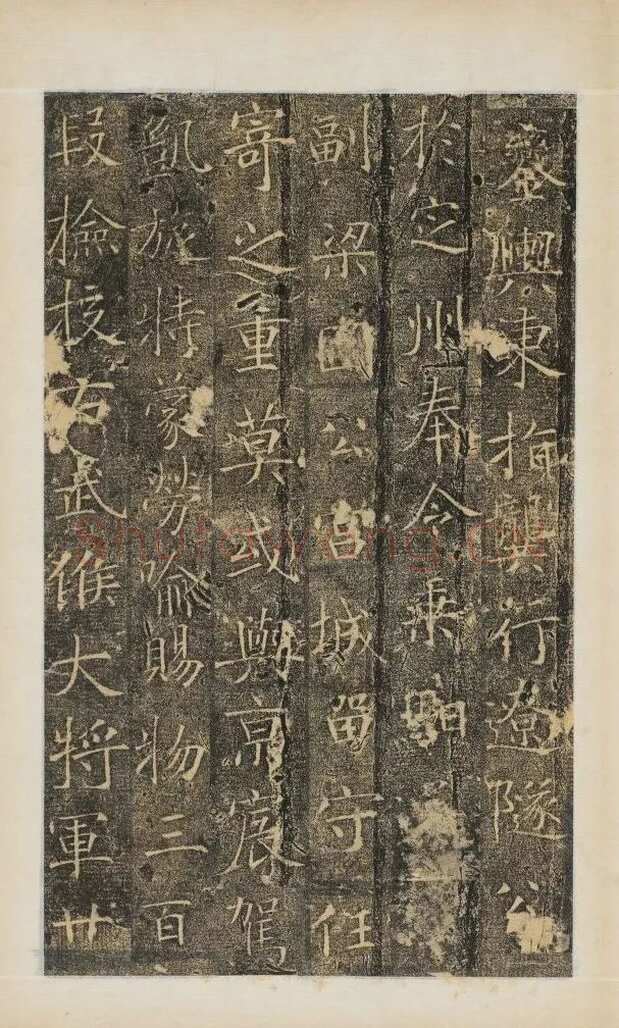 鑾輿東指龔行遼隧公
於定州奉令乘馹
副梁國公宮城留守任
寄之重莫或輿京宸駕
凱旋特蒙勞喻賜物三百
段檢校右武候大將軍廿